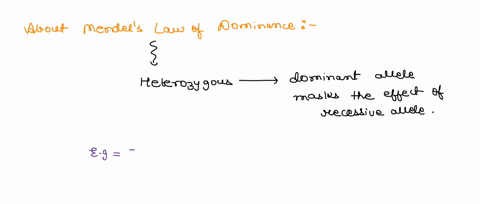 About Mendel's Law of Dominance :-
Heterozygous → dominant allele
masks the effect of
recessive allele.
E.g = -